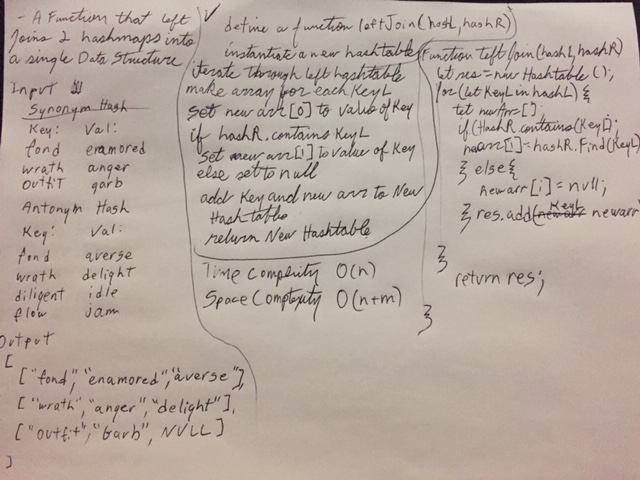 - A Function that left
Joins 2 hashmaps into
a single Data Structure
Input
Synonym Hash
Key: Val:
fond enamored
wrath anger
outfit garb
Antonym Hash
Key: Val:
fond averse
wrath delight
diligent idle
flow jam
Output
[
["fond", "enamored", "averse"],
["wrath", "anger", "delight"],
["outfit", "garb", NULL]
]
define a function leftJoin(hashL, hashR)
instantiate a new hashtable
iterate through left hashtable
make array for each KeyL
Set new arr[0] to value of Key
if hashR.contains KeyL
Set newarr[1] to value of Key
else set to null
add Key and new arr to New
Hashtable
return New Hashtable
Time Complexity O(n)
Space Complexity O(n+m)
Function leftJoin(hashL, hashR)
let res = new Hashtable();
for (let KeyL in hashL) {
let newArr = []
if (HashR.contains(KeyL)
newarr[1] = hashR.Find(KeyL)
} else {
newarr[1] = null;
} res.add(Key, newarr
}
return res;
}